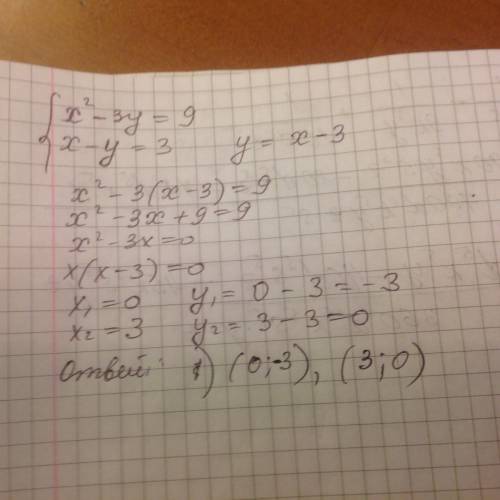 x² - 3y = 9
x - y = 3 y = x - 3
x² - 3(x - 3) = 9
x² - 3x + 9 = 9
x² - 3x = 0
x(x - 3) = 0
x₁ = 0 y₁ = 0 - 3 = -3
x₂ = 3 y₂ = 3 - 3 = 0
Ответ: 1) (0; -3), (3; 0)